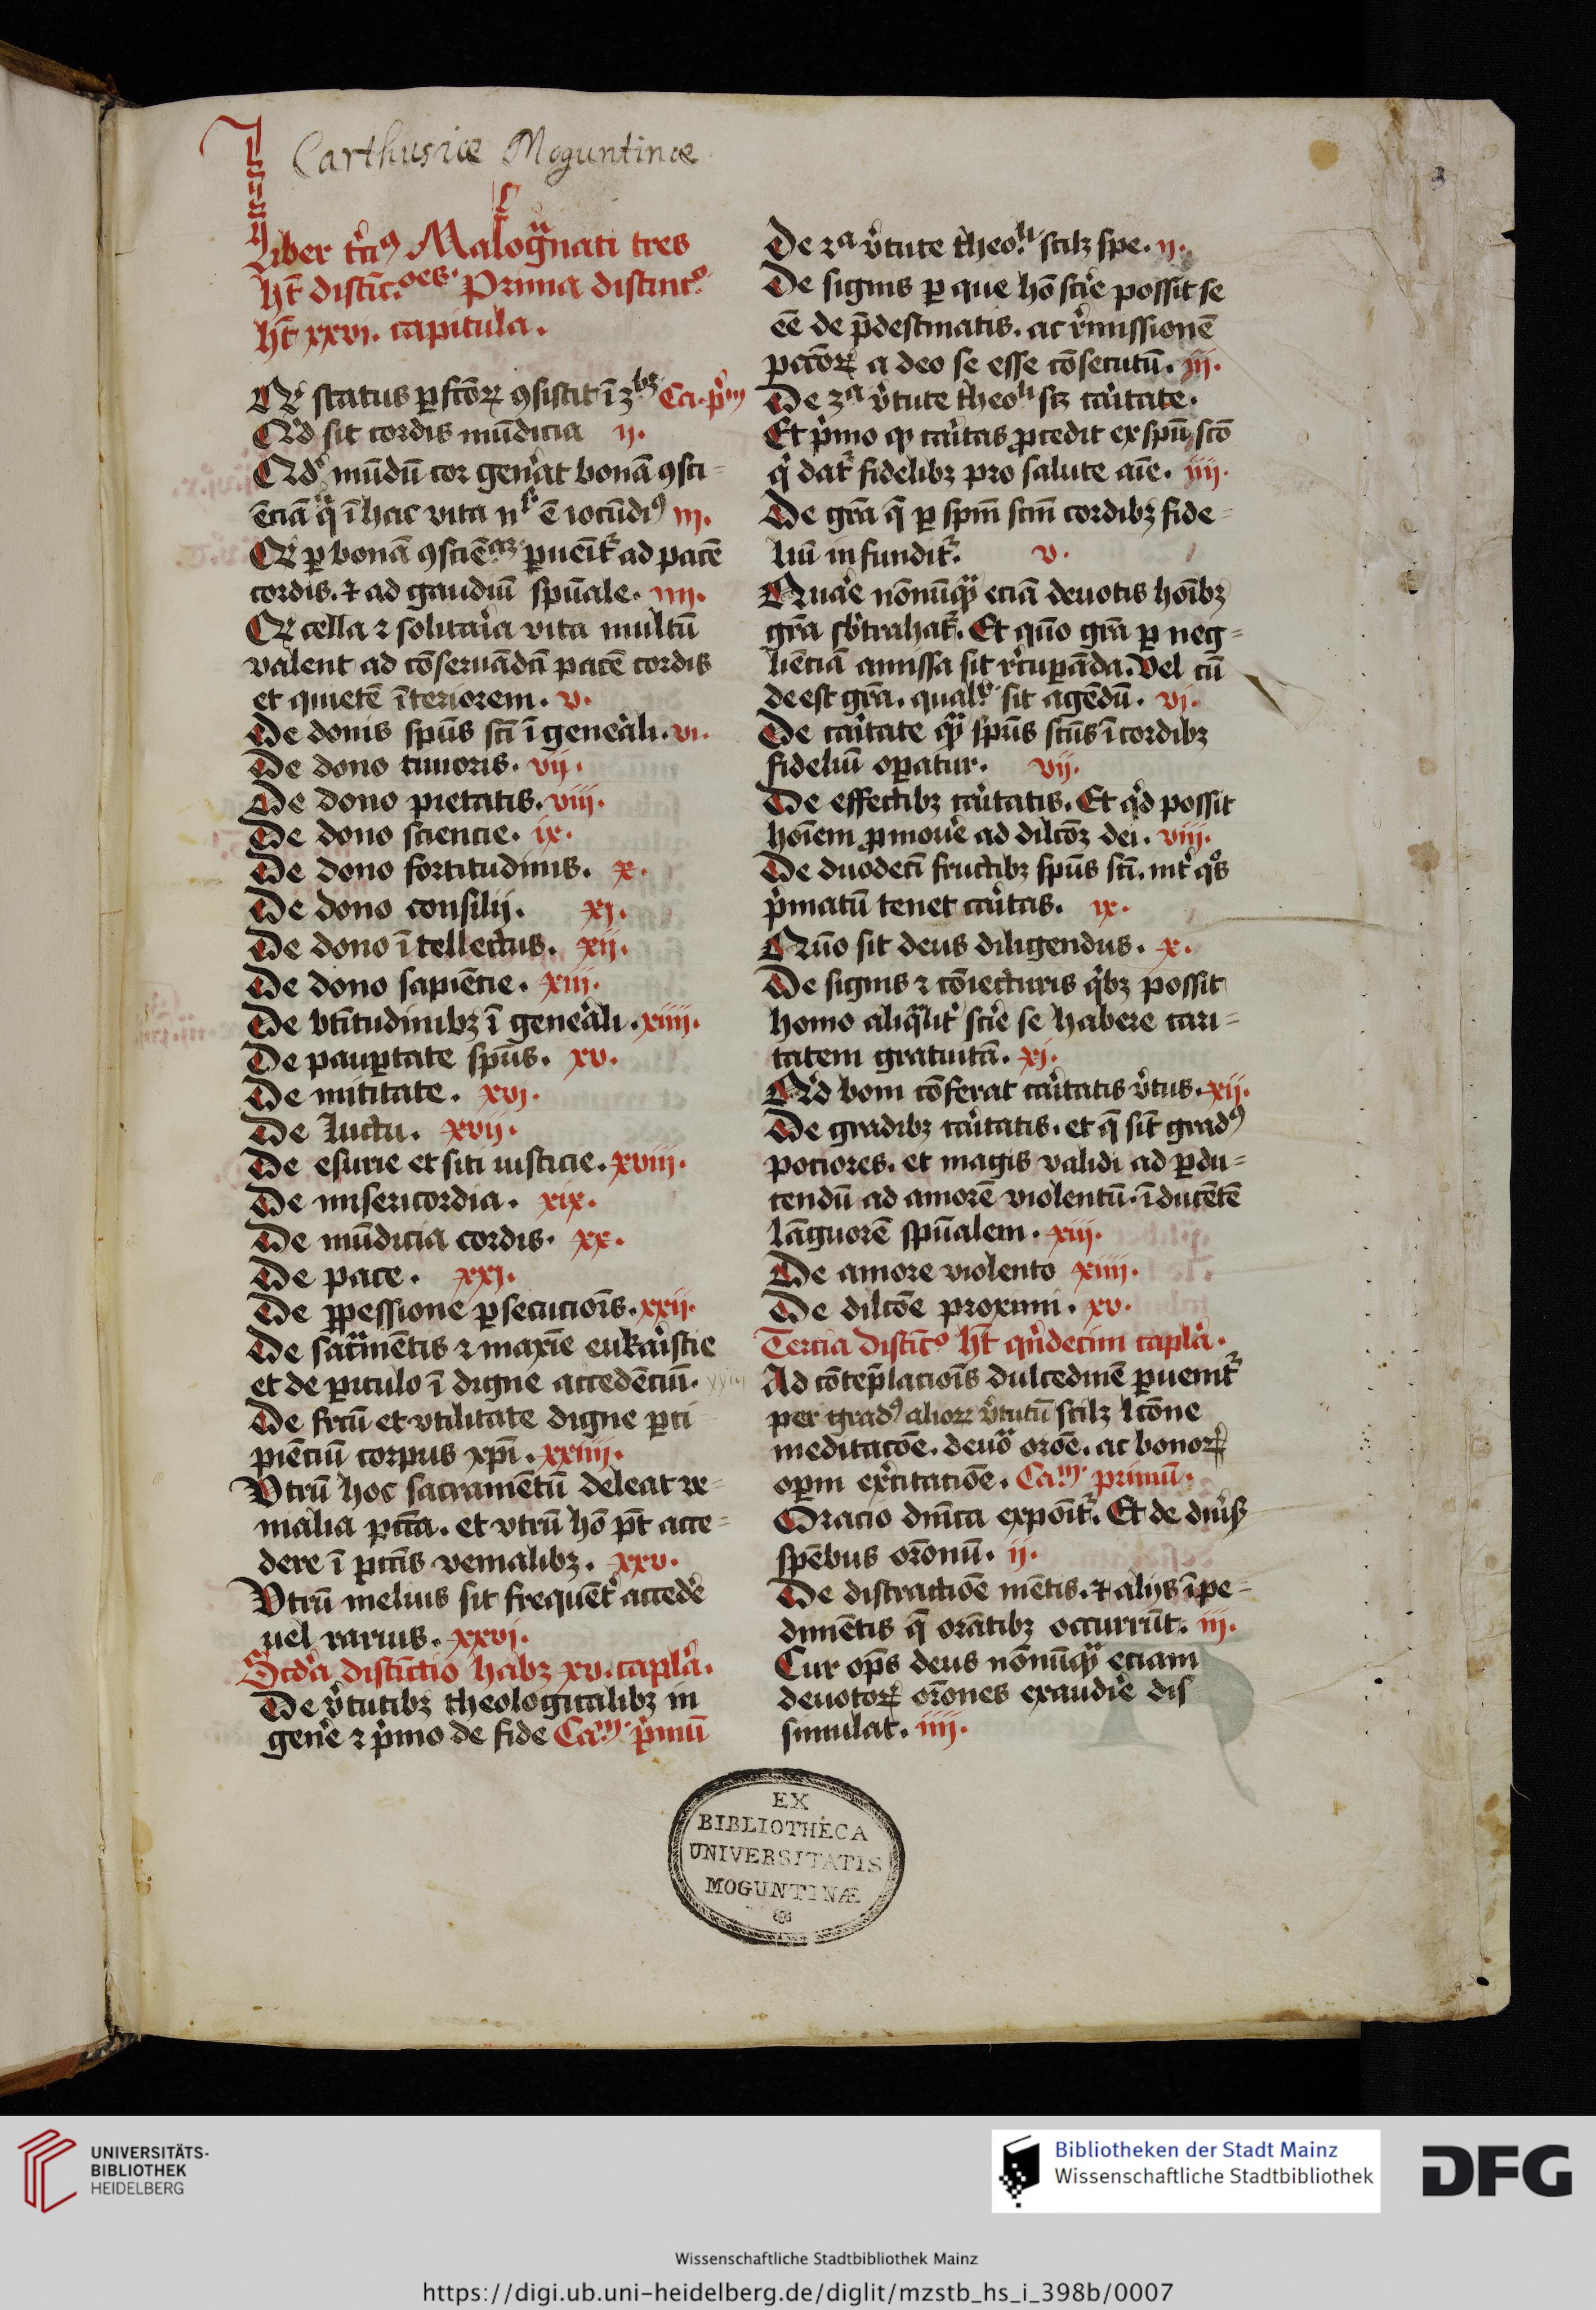 Carthusiæ Moguntinæ
3
Liber t͛ciꝰ Malogᷓnati tres
hñt distīc.oes. Prima distinc.o
hñt xxvj. capitula.
Ꝙ status ꝑfcōꝝ ꝯsistit ī 3bꝫ Ca. p͛m
Qd͛ sit cordis mūdicia ij.
Qd͛ mūdū cor gen͛at bonā ꝯsci=
ēciā qᷓ ī hac vita nl̓ ē iocūdiꝰ iij.
Ꝙ ꝑ bonā ꝯsciēciaꝫ ꝑuēit᷑ ad pacē
cordis. ⁊ ad gaudiū spūale. iiij.
Ꝙ cella ⁊ solitar͛ia vita multū
valent ad cōseruādā pacē cordis
et quietē īteriorem. v.
De donis spūs sc̄i ī gene͛ali. vi.
De dono timoris. vij.
De dono pietatis. viij.
De dono sciencie. ix.
De dono fortitudinis. x.
De dono consilij. xj.
De dono ītellectus. xij.
De dono sapiēcie. xiij.
De bt̄itudinibꝫ ī gene͛ali. xiiij.
De pauꝑtate spūs. xv.
De mititate. xvj.
De luctu. xvij.
De esurie et siti iusticie. xviij.
De misericordia. xix.
De mūdicia cordis. xx.
De pace. xxj.
De ꝑpessione ꝑsecucioīs. xxij.
De sacᷓmētis ⁊ maxīe eukar͛istie
et de ꝑiculo ī digne accedēciū. xxiij
De frc̄ū et vtilitate digne ꝑci
piēciū corpus xp̄i. xxiiij.
Vtrū hoc sacramētū deleat ve=
nialia pcc̄a. et vtrū hō pt̄ acce=
dere ī pcc̄is venialibꝫ. xxv.
Vtrū melius sit frequēt͛ accede͛
uel rarius. xxvj.
Scd͛a distīctio habꝫ xv. capl͛a.
De v͛tutibꝫ theologicalibꝫ in
gene͛ ⁊ p͛mo de fide Cam. p͛mū
De 2a v͛tute theo.li scilꝫ spe. ij.
De signis ꝑ que hō scir͛e possit se
eē de p̄destinatis. ac r͛missionē
pccōꝝ a deo se esse cōsecutū. iij.
De 3a v͛tute theoli scꝫ car͛itate.
Et p͛mo ꝙ car͛itas ꝓcedit ex spū sc̄o
q͛ dat᷑ fidelibꝫ pro salute aīe. iiij.
De grā q̄ ꝑ spm̄ scm̄ cordibꝫ fide=
liū infundit᷑. v.
Quar͛e nōnūqᷓ eciā deuotis hoībꝫ
grā sb͛trahat᷑. Et quō grā ꝑ neg=
liēciā amissa sit r͛cuꝑāda. Vel cū
deest grā. qualr͛ sit agēdū. vj.
De car͛itate qᷓ spūs scūs ī cordibꝫ
fideliū oꝑatur. vij.
De effectibꝫ car͛itatis. Et qd͛ possit
hoīem ꝓmoue͛ ad dilcōꝫ dei. viij.
De duodecī fructibꝫ spūs sc̄i. int͛ qos
p͛matū tenet car͛itas. ix.
Quō sit deus diligendus. x.
De signis ⁊ cōiecturis q͛bꝫ possit
homo aliqᷓlit͛ scir͛e se habere cari=
tatem gratuitā. xj.
Qd͛ boni cōferat car͛itatis v͛tus. xij.
De gradibꝫ car͛itatis. et q̄ sīt gradꝰ
pociores. et magis validi ad ꝑdu=
cendū ad amorē violentū. īducētē
lāguorē spūalem. xiij.
De amore violento xiiij.
De dilcōe proximi. xv.
Tercia distīcᵒ hñt qn͛decim capl͛a.
Ad cōtep̄lacioīs dulcedinē ꝑuenit᷑
per gradꝰ alioꝝ v͛tutū scilꝫ lcōne
meditacōe. deuoᷓ orōe. ac bonoꝝ
oꝑm ex͛citaciōe. Cam. primū.
Oracio dnīca expoīt᷑. Et de diu͛sꝭ
spēbus orōnū. ij.
De distractiōe mētis. ⁊ alijs īpe=
dimētis q̄ orātibꝫ occurrūt. iij.
Cur ops̄ deus nōnūqᷓ eciam
deuotoꝝ orōnes exaudir͛e dis
simulat. iiij.
EX
BIBLIOTHECA
UNIVERSITATIS
MOGUNTINÆ
UNIVERSITÄTS-
BIBLIOTHEK
HEIDELBERG
Bibliotheken der Stadt Mainz
Wissenschaftliche Stadtbibliothek
DFG
Wissenschaftliche Stadtbibliothek Mainz
https://digi.ub.uni-heidelberg.de/diglit/mzstb_hs_i_398b/0007